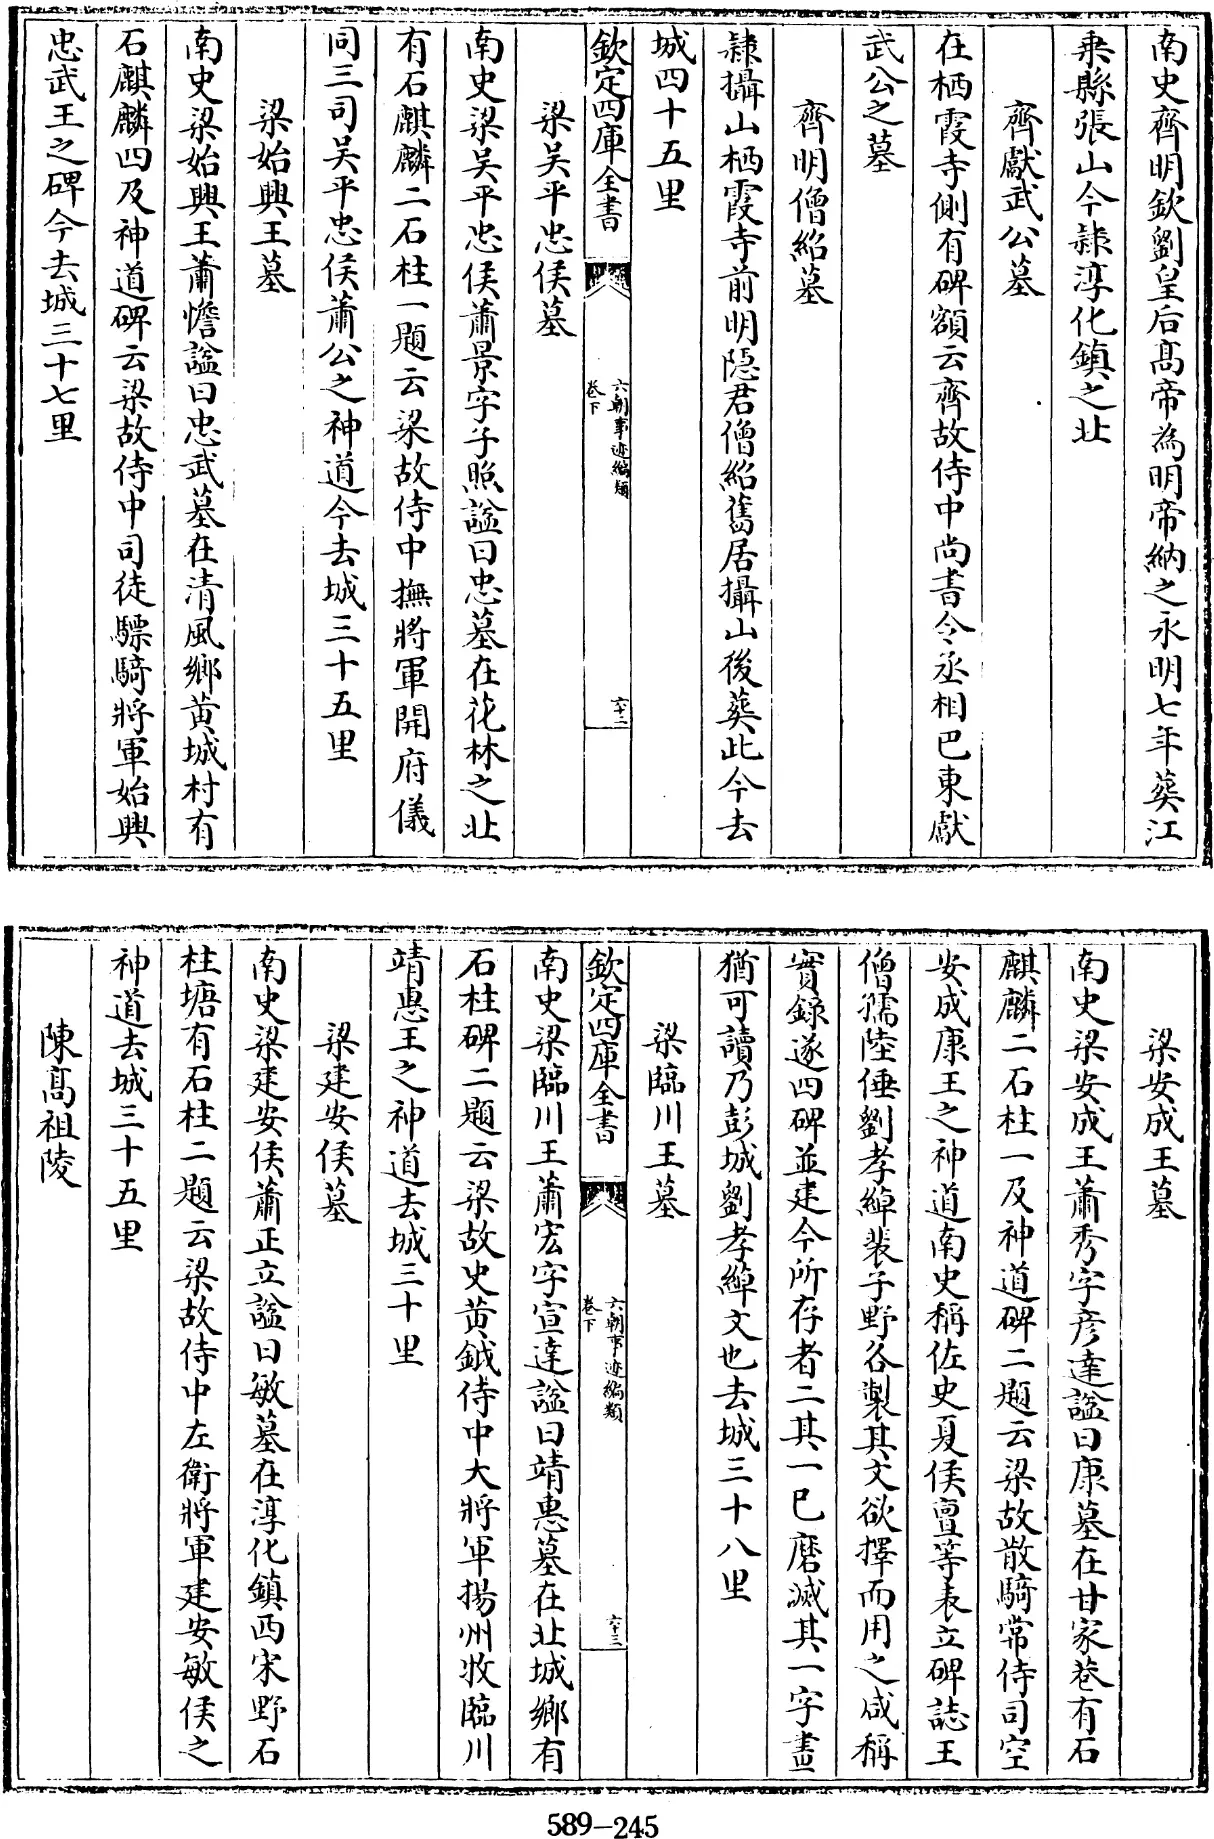 南史齊明欽劉皇后髙帝為明帝納之永明七年葬江
乗縣張山今隷淳化鎮之北
齊獻武公墓
在栖霞寺側有碑額云齊故侍中尚書令丞相巴東獻
武公之墓
齊明僧紹墓
隷攝山栖霞寺前明隠君僧紹舊居攝山後葬此今去
城四十五里
欽定四庫全書
六朝事迹編類
卷下
六十二
梁吴平忠侯墓
南史梁吴平忠侯蕭景字子照諡曰忠墓在花林之北
有石麒麟二石柱一題云梁故侍中撫將軍開府儀
同三司吴平忠侯蕭公之神道今去城三十五里
梁始興王墓
南史梁始興王蕭憺諡曰忠武墓在清風鄉黄城村有
石麒麟四及神道碑云梁故侍中司徒驃騎將軍始興
忠武王之碑今去城三十七里
梁安成王墓
南史梁安成王蕭秀字彦達諡曰康墓在甘家巷有石
麒麟二石柱一及神道碑二題云梁故散騎常侍司空
安成康王之神道南史稱佐史夏侯亶等表立碑誌王
僧孺陸倕劉孝綽裴子野各製其文欲擇而用之咸稱
實録遂四碑並建今所存者二其一已磨滅其一字畫
猶可讀乃彭城劉孝綽文也去城三十八里
梁臨川王墓
欽定四庫全書
六朝事迹編類
卷下
六十三
南史梁臨川王蕭宏字宣達諡曰靖惠墓在北城鄉有
石柱碑二題云梁故史黄鉞侍中大將軍揚州牧臨川
靖惠王之神道去城三十里
梁建安侯墓
南史梁建安侯蕭正立諡曰敏墓在淳化鎮西宋野石
柱塘有石柱二題云梁故侍中左衛將軍建安敏侯之
神道去城三十五里
陳髙祖陵
589-245